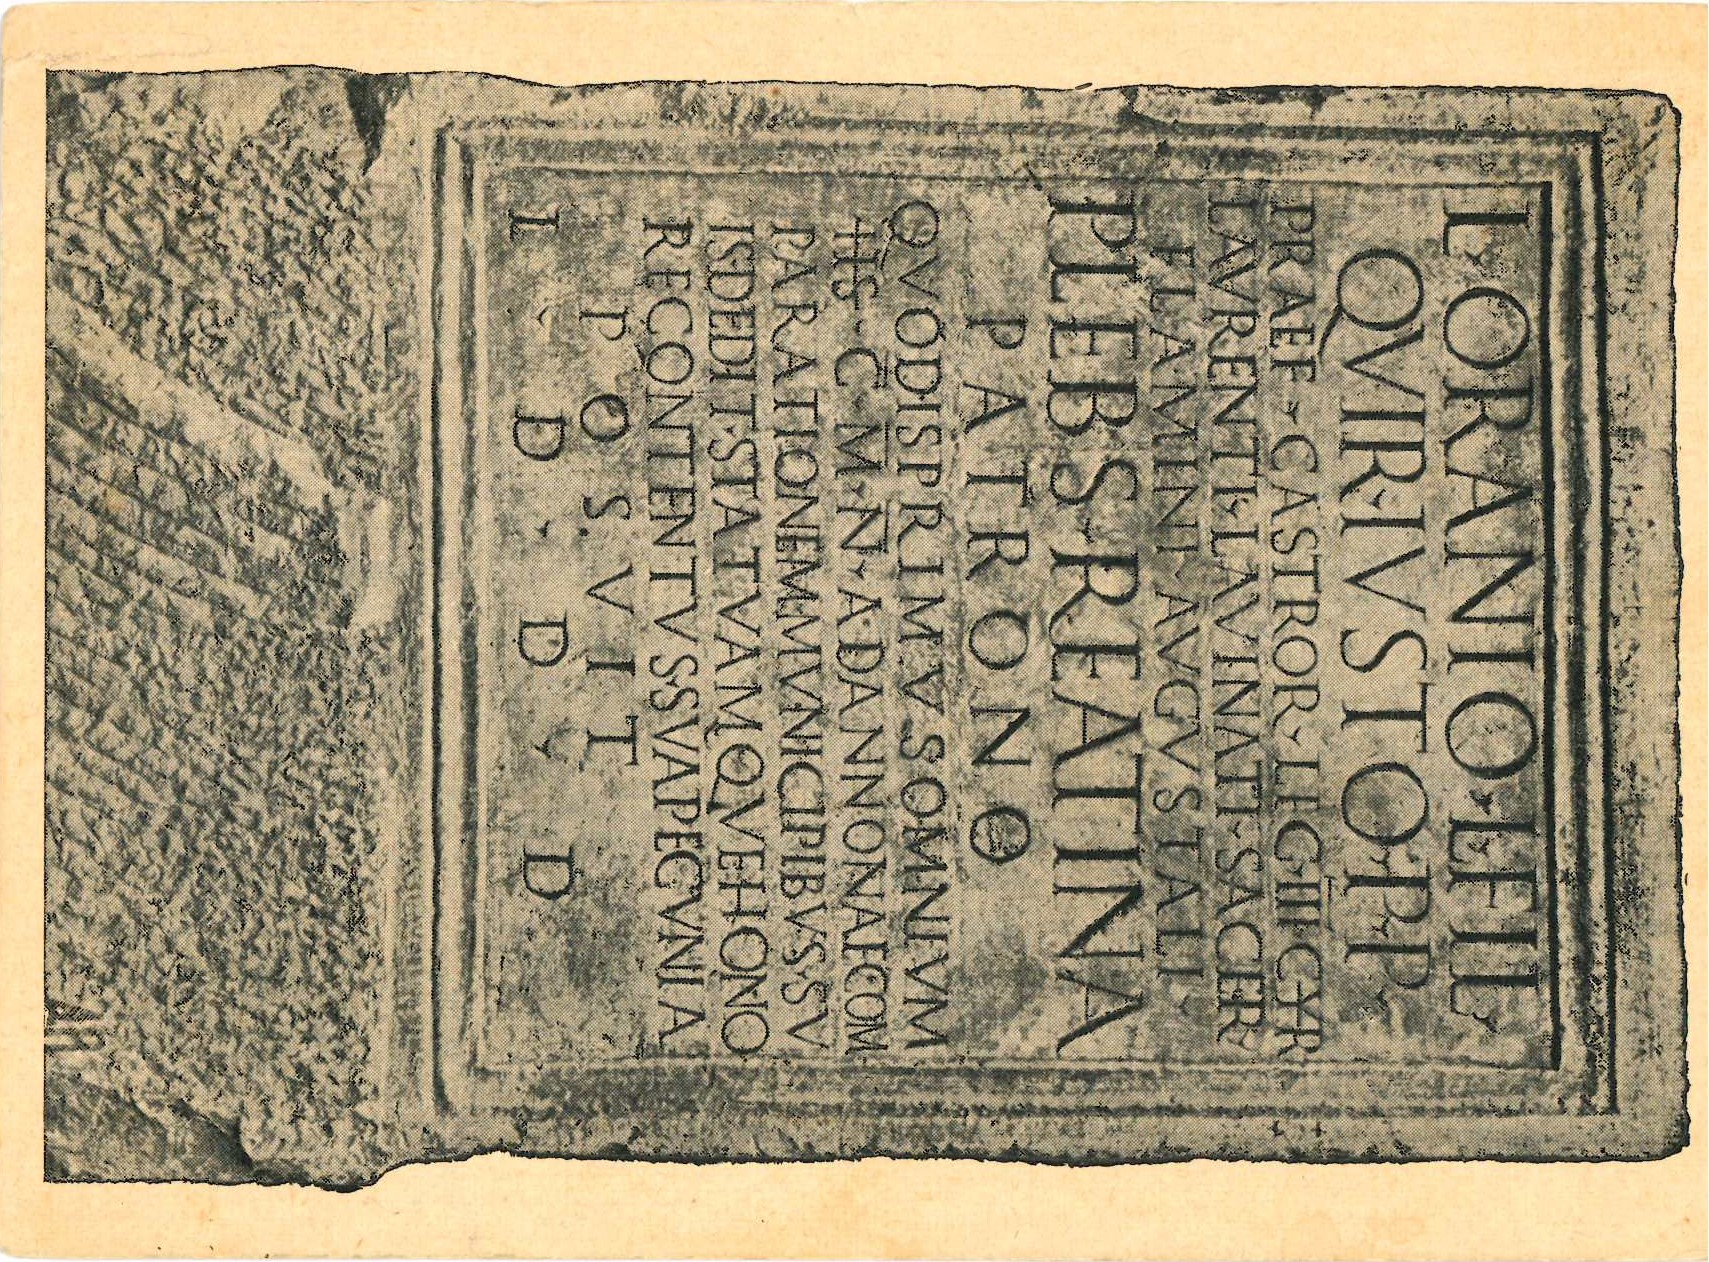 L·ORANIO·L·FIL·
QVIR·IVSTO·P·P·
PRAEF·CASTROR·LEG·IIII·CYR
LAVRENTI·LAVINATI·SACER
FLAMINI·AVGVSTALI·
PLEBS·REATINA
PATRONO
QVOD IS PRIMVS OMNIVM
HS·C·M·N·AD ANNONAE COM
PARATIONEM MVNICIPIBVS SV
IS DEDIT·STATVAMQVE HONO
RE CONTENTVS SVA PECVNIA
POSVIT
L·D·D·D